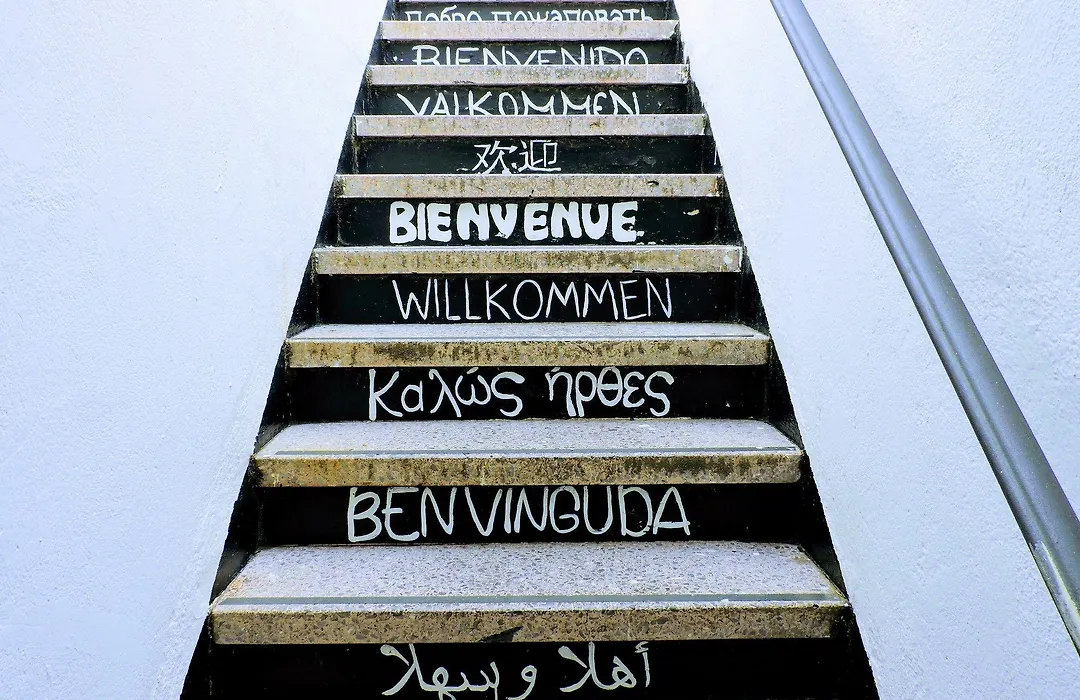 Добро пожаловать
BIENVENIDO
VALKOMMEN
欢迎
BIENVENUE
WILLKOMMEN
Καλώς ήρθες
BENVINGUDA
أهلا و سهلا